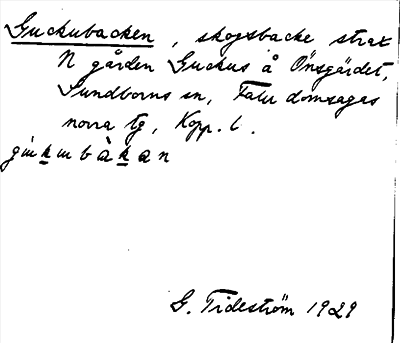 Guckubacken, skogsbacke strax
N gården Guckus å Önsgärdet,
Sundborns sn, Falu domsagas
norra tg, Kopp. l.
G. Tideström 1929